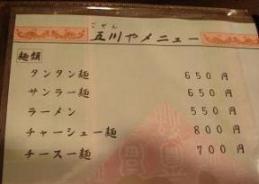 ごせん
五川やメニュー
麺類
タンタン麺 650円
サンラー麺 650円
ラーメン 550円
チャーシュー麺 800円
チースー麺 700円